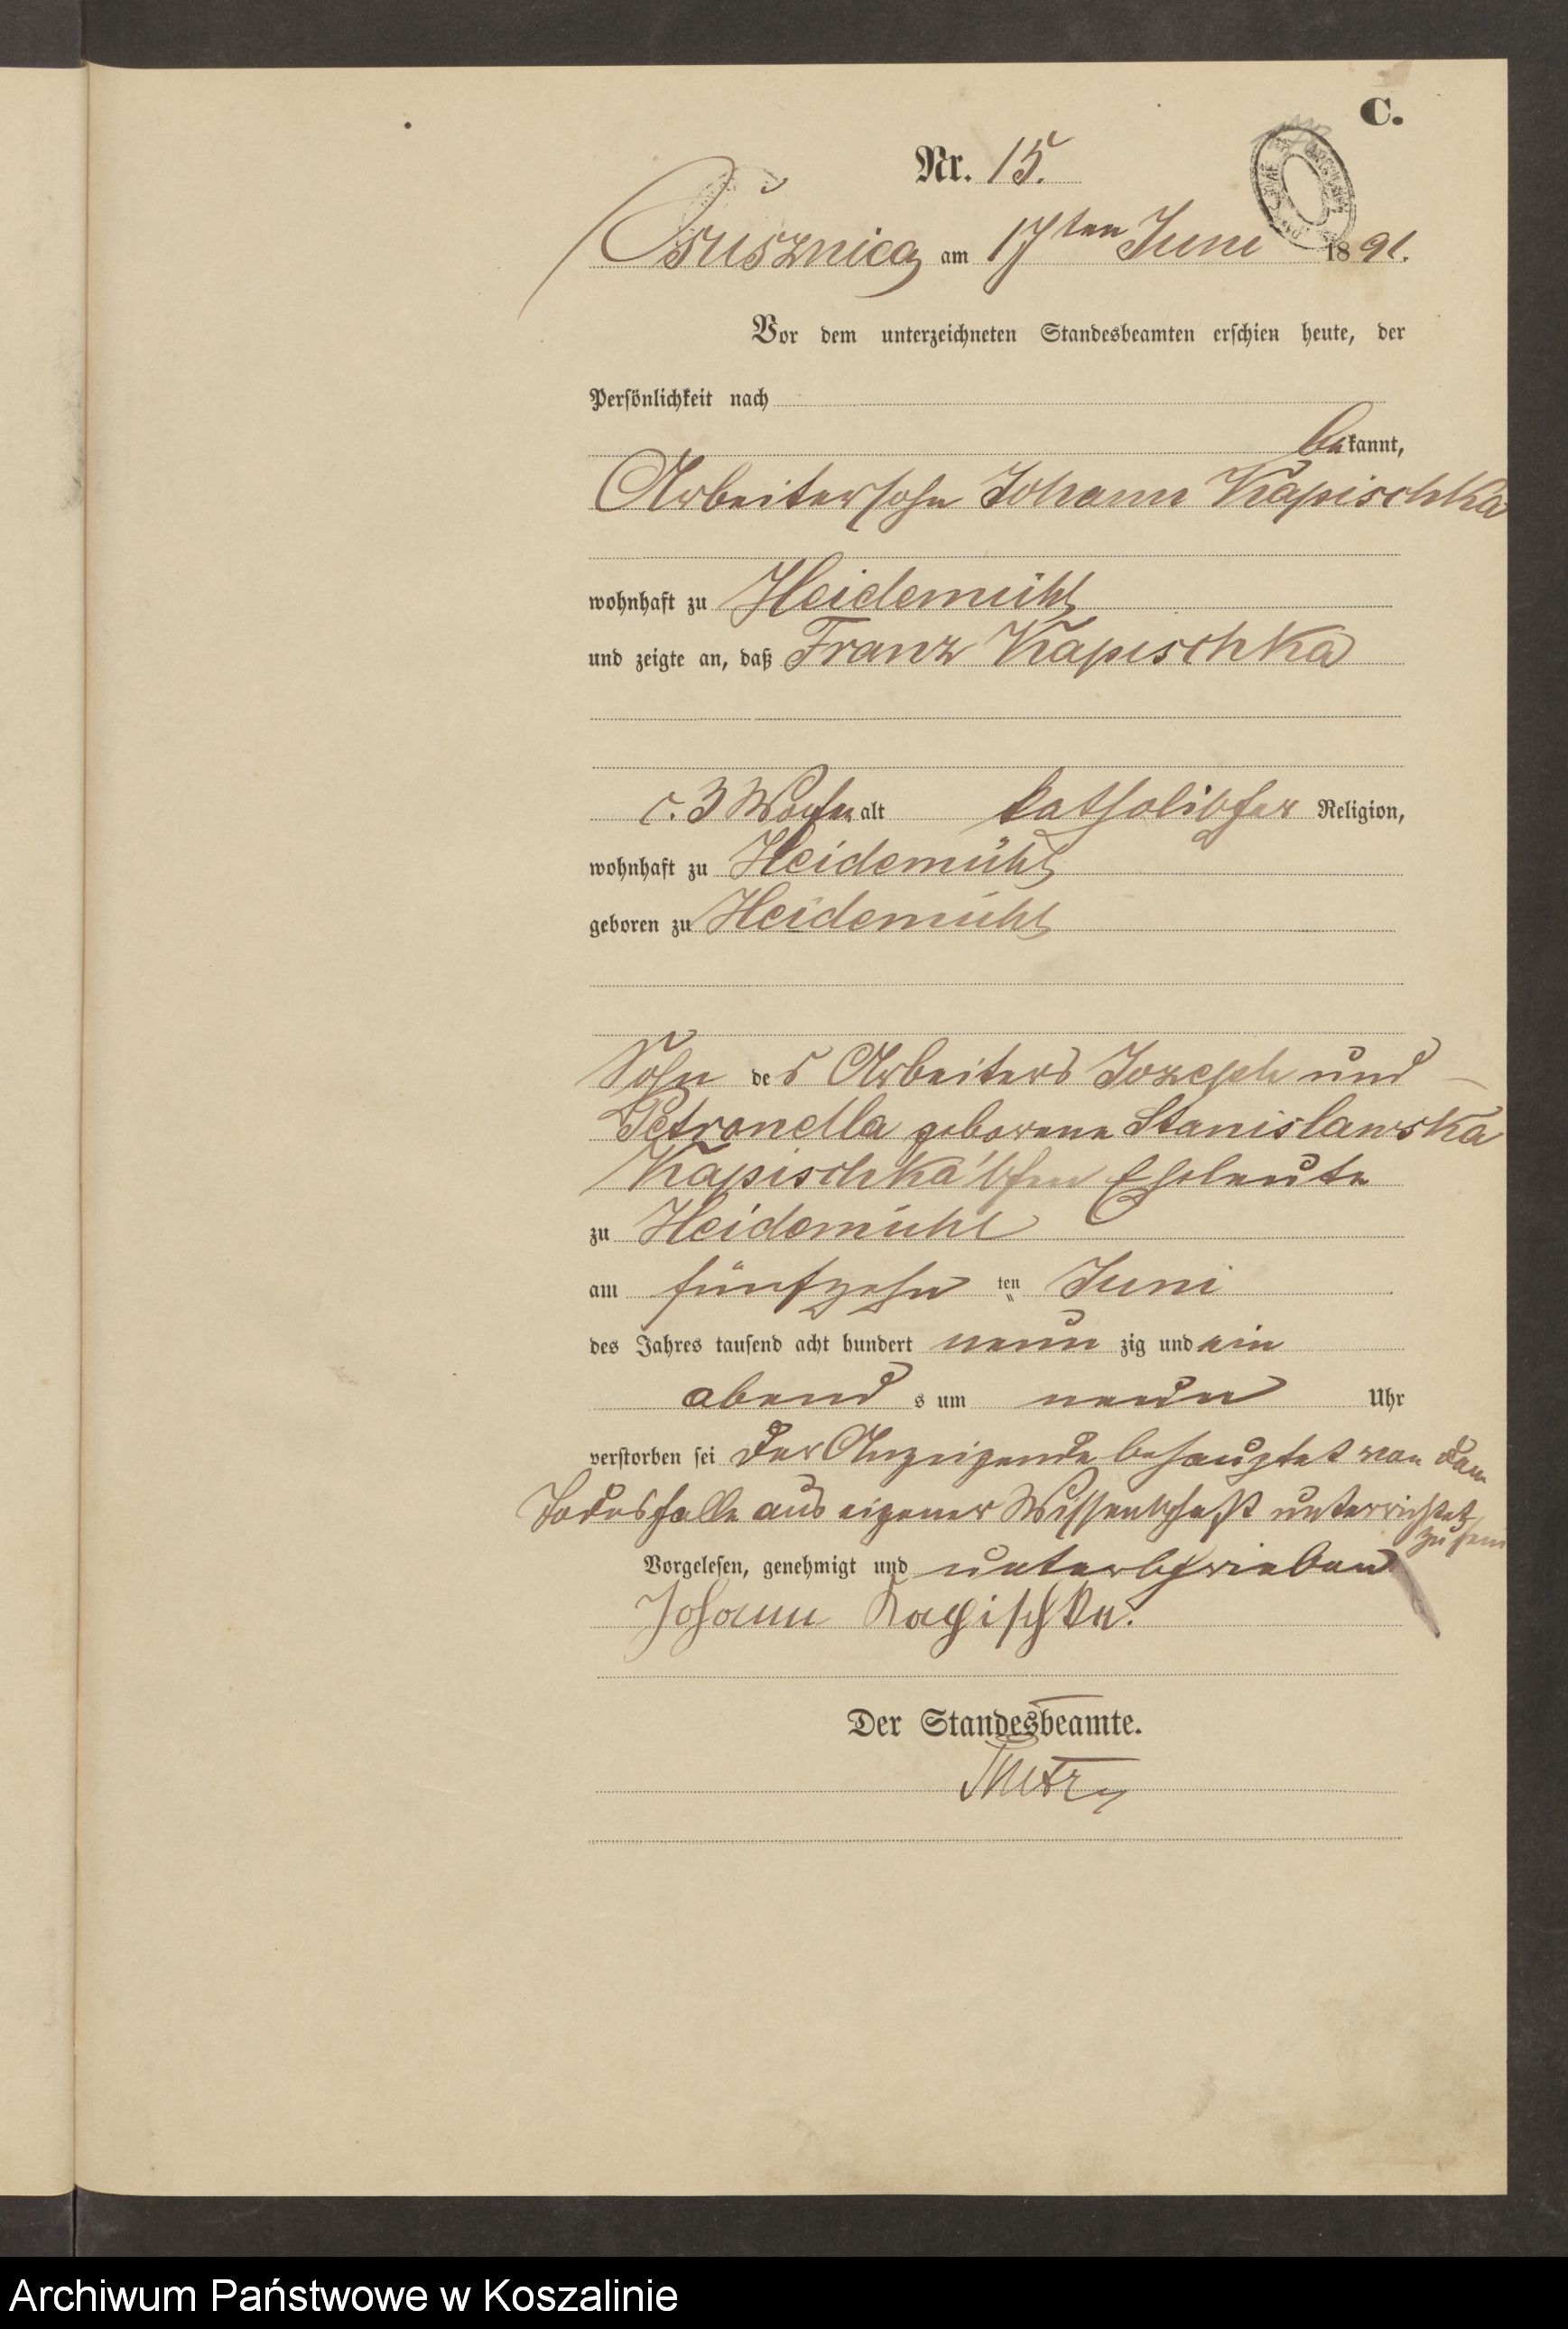 C.
Nr. 15.
Osusznica am 17ten Juni 1891.
Vor dem unterzeichneten Standesbeamten erschien heute, der
Persönlichkeit nach
bekannt,
Arbeitersohn Johann Kapischka
wohnhaft zu Heidemühl
und zeigte an, daß Franz Kapischka
c. 3 Wochen alt katholischer Religion,
wohnhaft zu Heidemühl
geboren zu Heidemühl
Sohn des Arbeiters Jozeph und
Petronella geborene Stanislawska
Kapischka'schen Eheleute
zu Heidemühl
am fünfzehn ten Juni
des Jahres tausend acht hundert neun zig und ein
abend s um neun Uhr
verstorben sei Der Anzeigende behauptet von dem
Todesfalle aus eigener Wissenschaft unterrichtet
zu sein
Vorgelesen, genehmigt und unterschrieben
Johann Kapischka.
Der Standesbeamte.
Archiwum Państwowe w Koszalinie